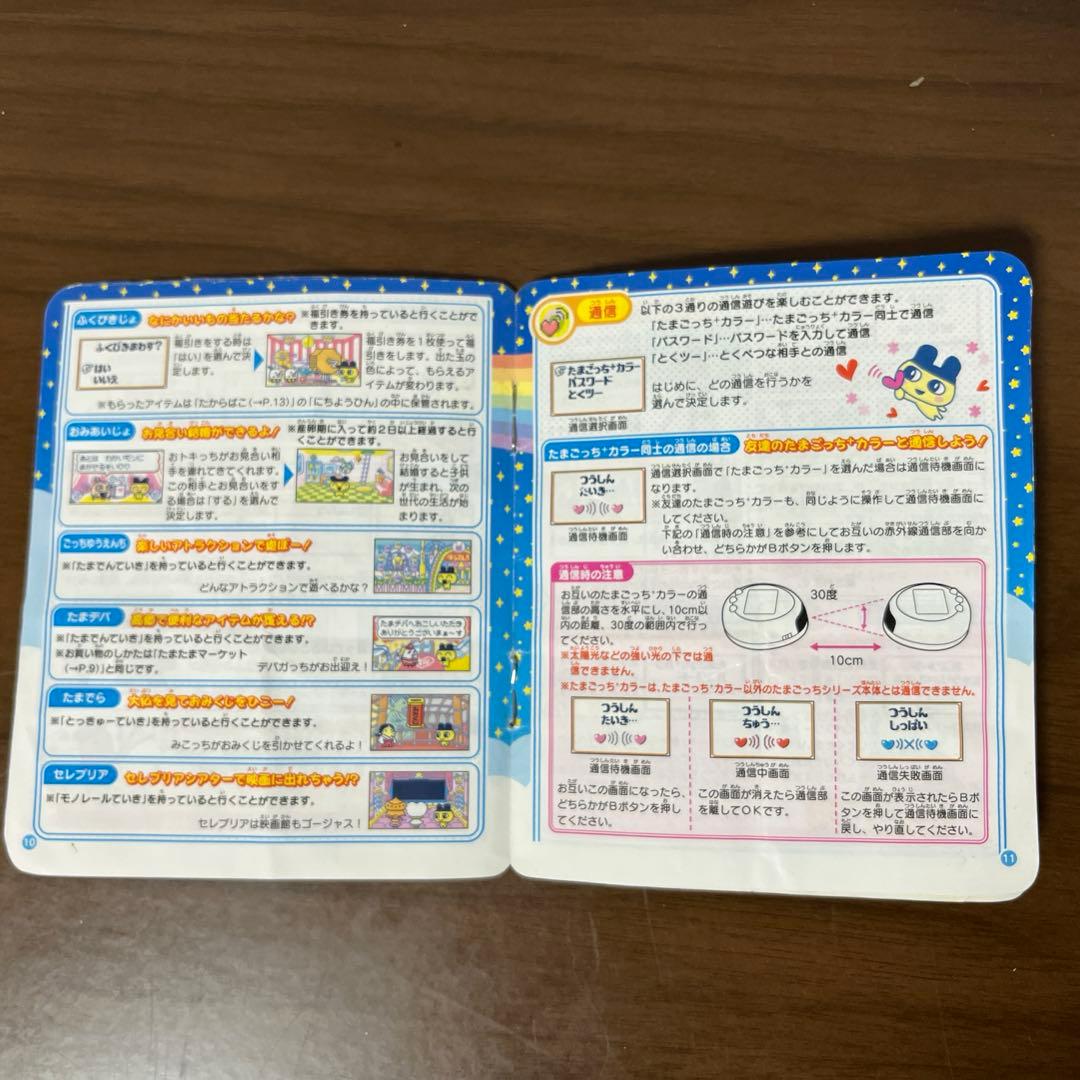 ふくびきじょ
なにかいいもの当たるかな?
※福引き券を持っていると行くことができます。
ふくびきまわす?
はい
いいえ
福引きをする時は
「はい」を選んで決
定します。
福引き券を1枚使って福
引きをします。出た玉の
色によって、もらえるア
イテムが変わります。
※もらったアイテムは「たからばこ(→P.13)」の「にちようひん」の中に保管されます。
おみあいじょ
お見合い結婚ができるよ!
※産卵期に入って約2日以上経過すると行
くことができます。
おトキっちがお見合い相
手を連れてきてくれます。
この相手とお見合いをす
る場合は「する」を選んで
決定します。
お見合いをして
結婚すると子供
が生まれ、次の
世代の生活が始
まります。
ごっちゆうえんち
楽しいアトラクションで遊ぼー!
※「たまでんていき」を持っていると行くことができます。
どんなアトラクションで遊べるかな?
たまデパ
高価で便利なアイテムが買える!?
※「たまでんていき」を持っていると行くことができます。
※お買い物のしかたは「たまたまマーケット
(→P.9)」と同じです。
デパガっちがお出迎え!
たまデパへおこしいただき
ありがとうございまぁ〜す
たまでら
大仏を見ておみくじをひこー!
※「とっきゅーていき」を持っていると行くことができます。
みこっちがおみくじを引かせてくれるよ!
セレブリア
セレブリアシアターで映画に出れちゃう!?
※「モノレールていき」を持っていると行くことができます。
セレブリアは映画館もゴージャス!
10
通信
以下の3通りの通信遊びを楽しむことができます。
「たまごっち⁺カラー」…たまごっち⁺カラー同士で通信
「パスワード」…パスワードを入力して通信
「とくツー」…とくべつな相手との通信
たまごっち⁺カラー
パスワード
とくツー
通信選択画面
はじめに、どの通信を行うかを
選んで決定します。
たまごっち⁺カラー同士の通信の場合
友達のたまごっち⁺カラーと通信しよう!
つうしん
たいき…
通信待機画面
通信選択画面で「たまごっち⁺カラー」を選んだ場合は通信待機画面に
なります。
※友達のたまごっち⁺カラーも、同じように操作して通信待機画面に
してください。
下記の「通信時の注意」を参考にしてお互いの赤外線通信部を向か
い合わせ、どちらかがBボタンを押します。
通信時の注意
お互いのたまごっち⁺カラーの通
信部の高さを水平にし、10cm以
内の距離、30度の範囲内で行っ
てください。
※太陽光などの強い光の下では通
信できません。
30度
10cm
※たまごっち⁺カラーは、たまごっち⁺カラー以外のたまごっちシリーズ本体とは通信できません。
つうしん
たいき…
通信待機画面
お互いこの画面になったら、
どちらかがBボタンを押し
てください。
つうしん
ちゅう…
通信中画面
この画面が消えたら通信部
を離してOKです。
つうしん
しっぱい
通信失敗画面
この画面が表示されたらBボ
タンを押して通信待機画面に
戻し、やり直してください。
11